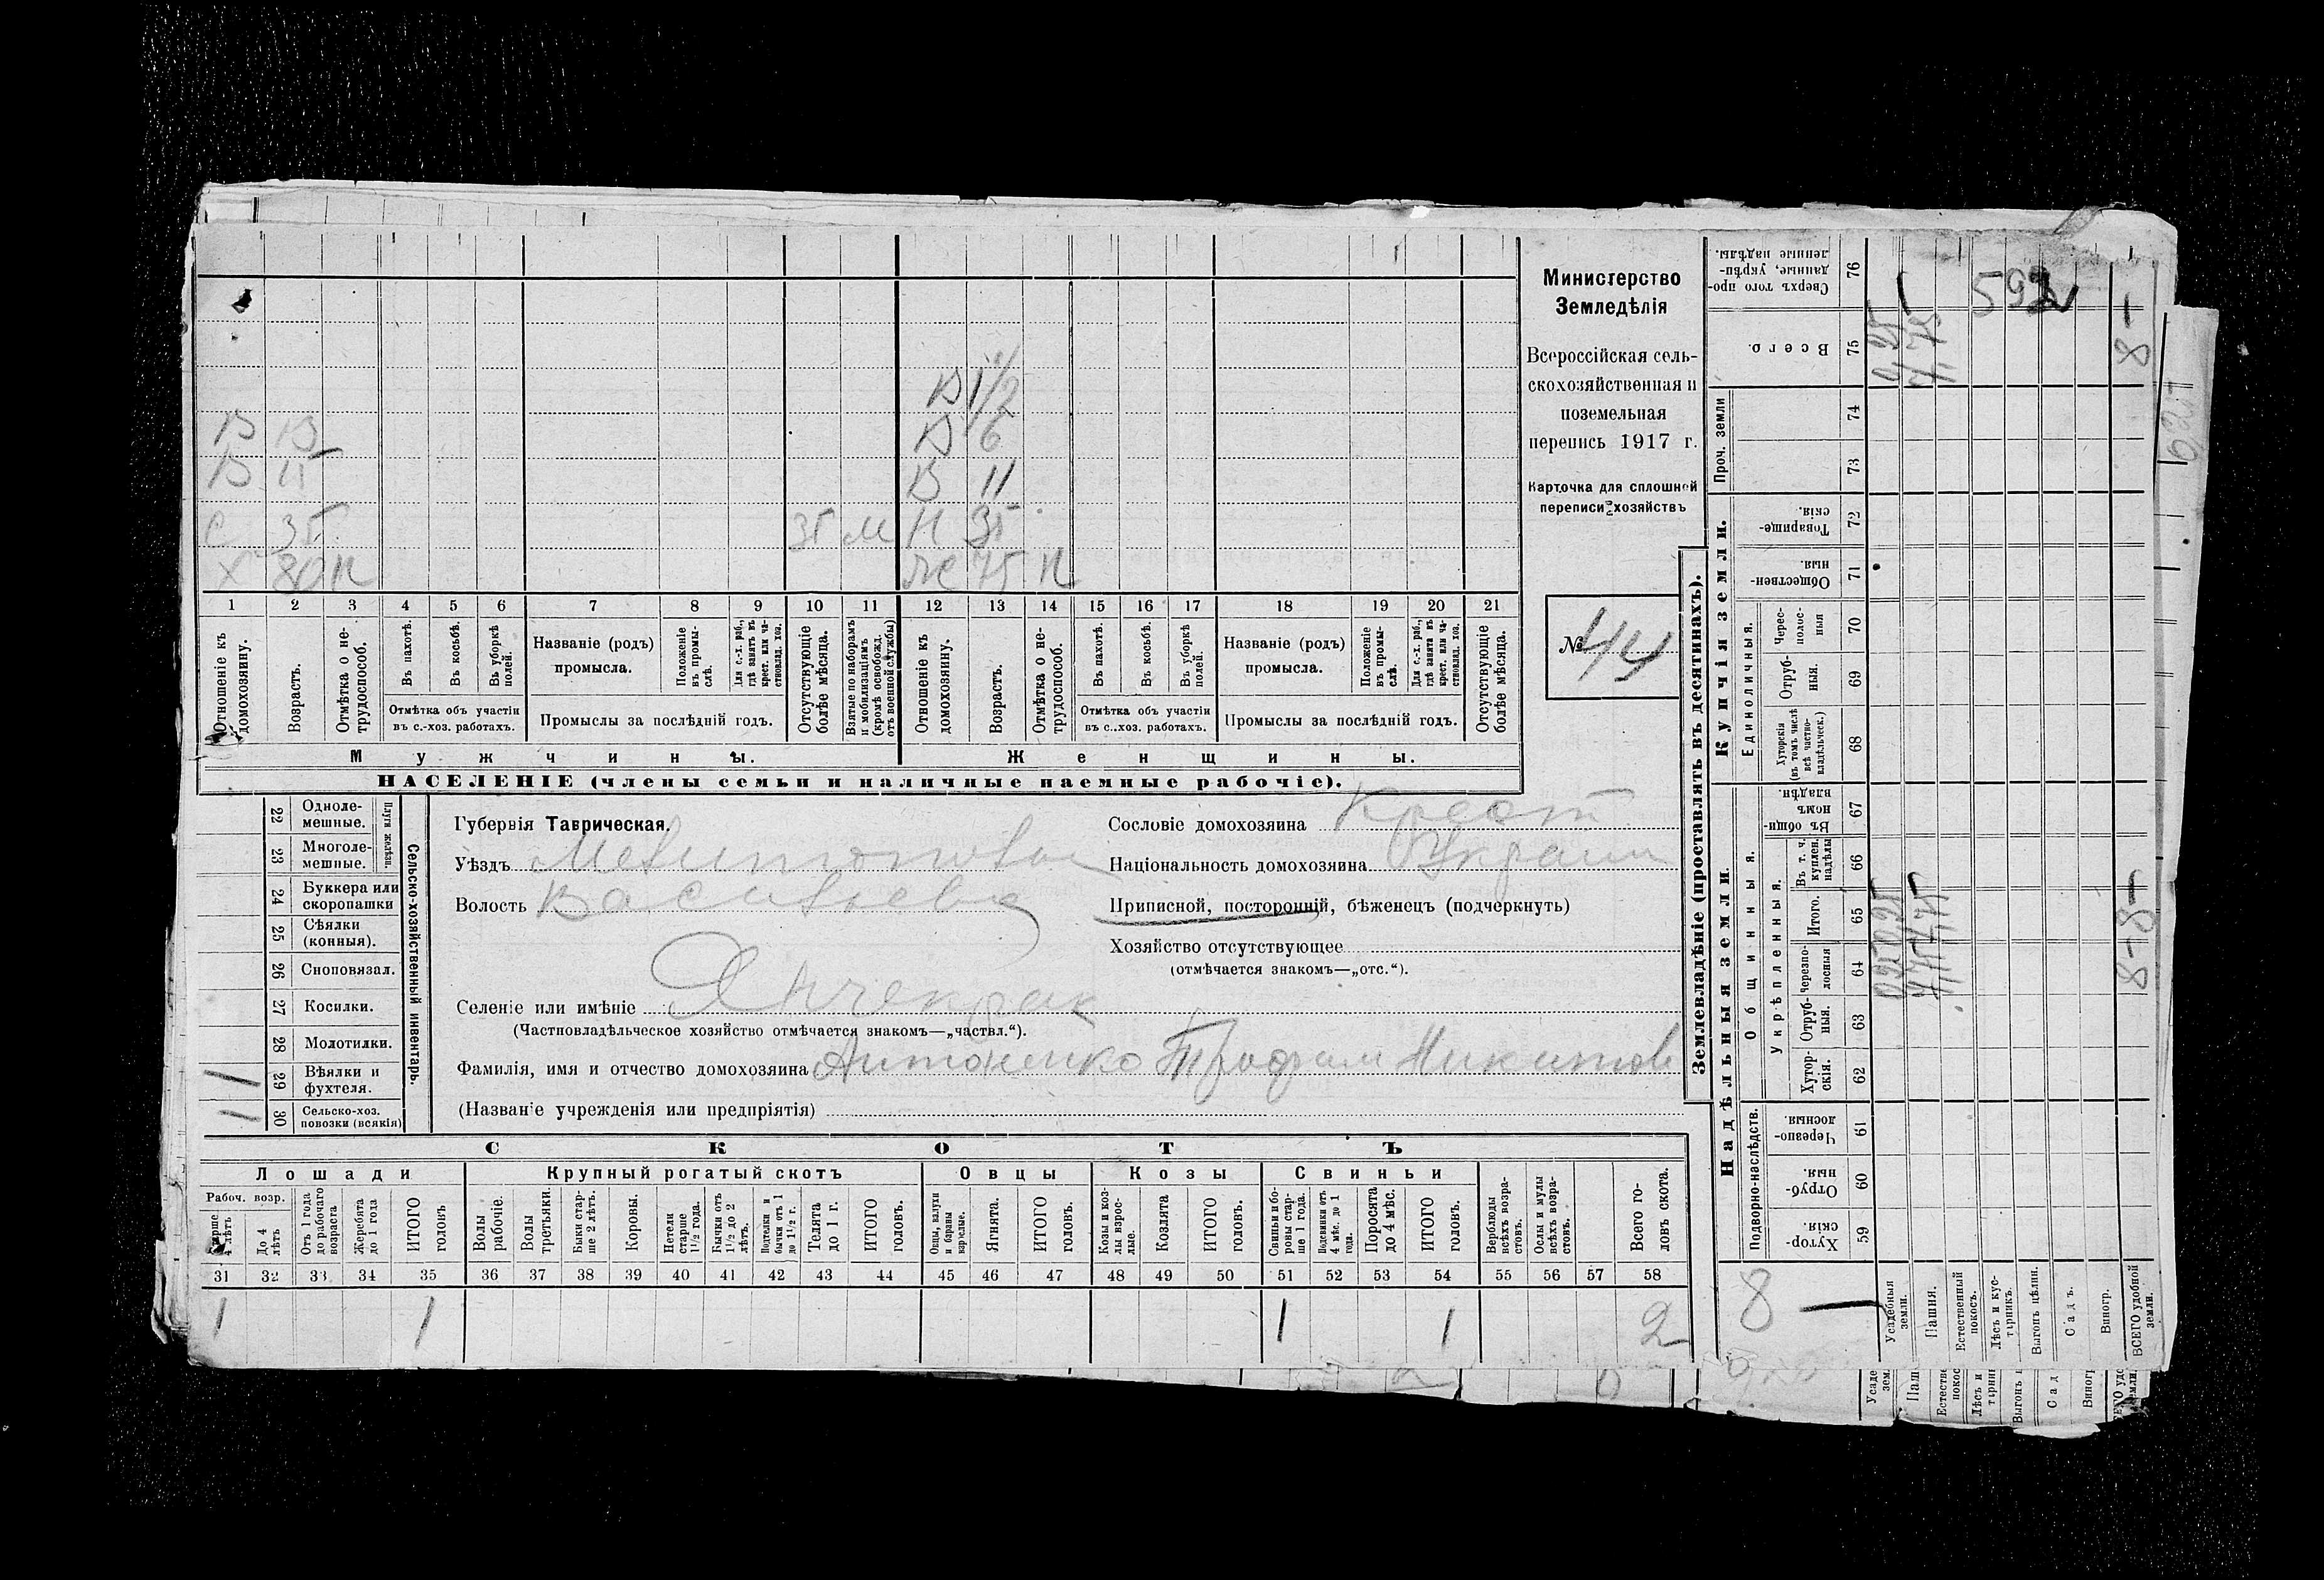 Министерство
Земледѣлія
Всероссійская сель-
скохозяйственная и
поземельная
перепись 1917 г.
Карточка для сплошной
переписи хозяйствъ
№ 44
В 1 1/2
В В 6
В 15 В 11
С 35 35 М Н 35
Х 80 Н Ж 75 Н
1 2 3 4 5 6 7 8 9 10 11 12 13 14 15 16 17 18 19 20 21
Отношеніе къ домохозяину.
Возрастъ.
Отмѣтка о не-трудоспособ.
Въ пахотѣ.
Въ косьбѣ.
Въ уборкѣ полей.
Отмѣтка объ участіи
въ с.-хоз. работахъ.
Названіе (родъ)
промысла.
Положеніе въ промы-слѣ.
Для с.-х. раб., гдѣ занятъ въ крест. или ча-стновлад. хоз.
Промыслы за послѣдній годъ.
Отсутствующіе болѣе мѣсяца.
Взятые по наборамъ и мобилизаціямъ (кромѣ освобожд. отъ военной службы)
Отношеніе къ домохозяину.
Возрастъ.
Отмѣтка о не-трудоспособ.
Въ пахотѣ.
Въ косьбѣ.
Въ уборкѣ полей.
Отмѣтка объ участіи
въ с.-хоз. работахъ.
Названіе (родъ)
промысла.
Положеніе въ промы-слѣ.
Для с.-х. раб., гдѣ занята въ крест. или ча-стновлад. хоз.
Промыслы за послѣдній годъ.
Отсутствующіе болѣе мѣсяца.
Мужчины. Женщины.
НАСЕЛЕНІЕ (члены семьи и наличные наемные рабочіе).
Сельско-хозяйственный инвентарь.
Плуги желѣзн.
22 Одноле-мешные.
23 Многоле-мешные.
24 Буккера или скоропашки
25 Сѣялки (конныя).
26 Сноповязал.
27 Косилки.
28 Молотилки.
1 29 Вѣялки и фухтеля.
1 30 Сельско-хоз. повозки (всякія)
Губернія Таврическая.
Уѣздъ Мелитопольс
Волость Васильевс
Селеніе или имѣніе Янчекрак
(Частновладѣльческое хозяйство отмѣчается знакомъ—„частвл.“).
Фамилія, имя и отчество домохозяина Антоненко Трофим Никитов
(Названіе учрежденія или предпріятія)
Сословіе домохозяина Крест
Національность домохозяина Украин
Приписной, посторонній, бѣженецъ (подчеркнуть)
Хозяйство отсутствующее
(отмѣчается знакомъ—„отс.“).
СКОТЪ
Лошади Крупный рогатый скотъ Овцы Козы Свиньи
Рабоч. возр.
Старше 4 лѣтъ
До 4 лѣтъ
Отъ 1 года до рабочаго возраста
Жеребята до 1 года
ИТОГО головъ
Волы рабочіе.
Волы третьяки.
Быки стар-ше 2 лѣтъ.
Коровы.
Нетели старше 1 1/2 года.
Бычки отъ 1 1/2 до 2 лѣтъ.
Подтелки и бычки отъ 1 до 1 1/2 г.
Телята до 1 г.
ИТОГО головъ.
Овцы, валухи и бараны взрослые.
Ягнята.
ИТОГО головъ.
Козы и коз-лы взрос-лые.
Козлята
ИТОГО головъ.
Свиньи и бо-ровы стар-ше 1 года.
Подсвинки отъ 4 мѣс. до 1 года.
Поросята до 4 мѣс.
ИТОГО головъ.
Верблюды всѣхъ возра-стовъ.
Ослы и мулы всѣхъ возра-стовъ.
Всего го-ловъ скота.
31 32 33 34 35 36 37 38 39 40 41 42 43 44 45 46 47 48 49 50 51 52 53 54 55 56 57 58
1 1 1 1 2
Землевладѣніе (проставлять въ десятинахъ).
Надѣльныя земли. Купчія земли. Проч. земли
Подворно-наслѣдств.
Общинныя.
Укрѣпленныя.
Единоличныя.
59 Хутор-скія.
60 Отруб-ныя.
61 Черезпо-лосныя.
62 Хутор-скія.
63 Отруб-ныя.
64 Черезпо-лосныя
65 Итого.
66 Въ т. ч. куплен. надѣлы
67 Въ общи-номъ владѣн.
68 Хуторскія (въ томъ числѣ всѣ частно-владѣльческ.)
69 Отруб-ныя.
70 Черес-полос-ныя
71 Обществен-ныя.
72 Товарище-скія.
73
74
75 Всего.
76 Сверхъ того про-данные, укрѣп-ленные надѣлы.
8 —
Усадебныя земли. 0,25 0,25 0,25
Пашня. 7,75 7,75 7,75
Естественный покосъ.
Лѣсъ и кус-тарникъ.
Выгонъ цѣлин.
Садъ.
Виногр.
ВСЕГО удобной земли. 8 — 8 — 8 —
592